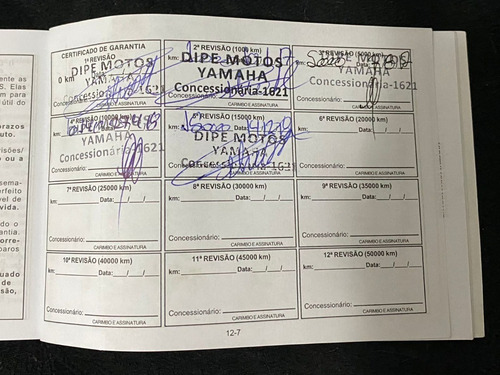 ente as
S. Elas
m para
útil do
prazos
uto.
visões/
o ou a
sema-
erfeito
vel de
vida.
do o
antia.
orre-
paros
uado
de
são,
CERTIFICADO DE GARANTIA
1ª REVISÃO
0 km
DIPE MOTOS
YAMAHA
Concessionária-1621
CARIMBO E ASSINATURA
2ª REVISÃO (1000 km)
DIPE MOTOS
YAMAHA
Concessionária-1621
CARIMBO E ASSINATURA
3ª REVISÃO (5000 km)
YAMAHA
Concessionária-1621
CARIMBO E ASSINATURA
4ª REVISÃO (10000 km)
YAMAHA
Concessionária-1621
CARIMBO E ASSINATURA
5ª REVISÃO (15000 km)
DIPE MOTOS
YAMAHA
Concessionária-1621
CARIMBO E ASSINATURA
6ª REVISÃO (20000 km)
km: Data: / /
Concessionário:
CARIMBO E ASSINATURA
7ª REVISÃO (25000 km)
km: Data: / /
Concessionário:
CARIMBO E ASSINATURA
8ª REVISÃO (30000 km)
km: Data: / /
Concessionário:
CARIMBO E ASSINATURA
9ª REVISÃO (35000 km)
km: Data: / /
Concessionário:
CARIMBO E ASSINATURA
10ª REVISÃO (40000 km)
km: Data: / /
Concessionário:
CARIMBO E ASSINATURA
11ª REVISÃO (45000 km)
km: Data: / /
Concessionário:
CARIMBO E ASSINATURA
12ª REVISÃO (50000 km)
km: Data: / /
Concessionário:
CARIMBO E ASSINATURA
12-7